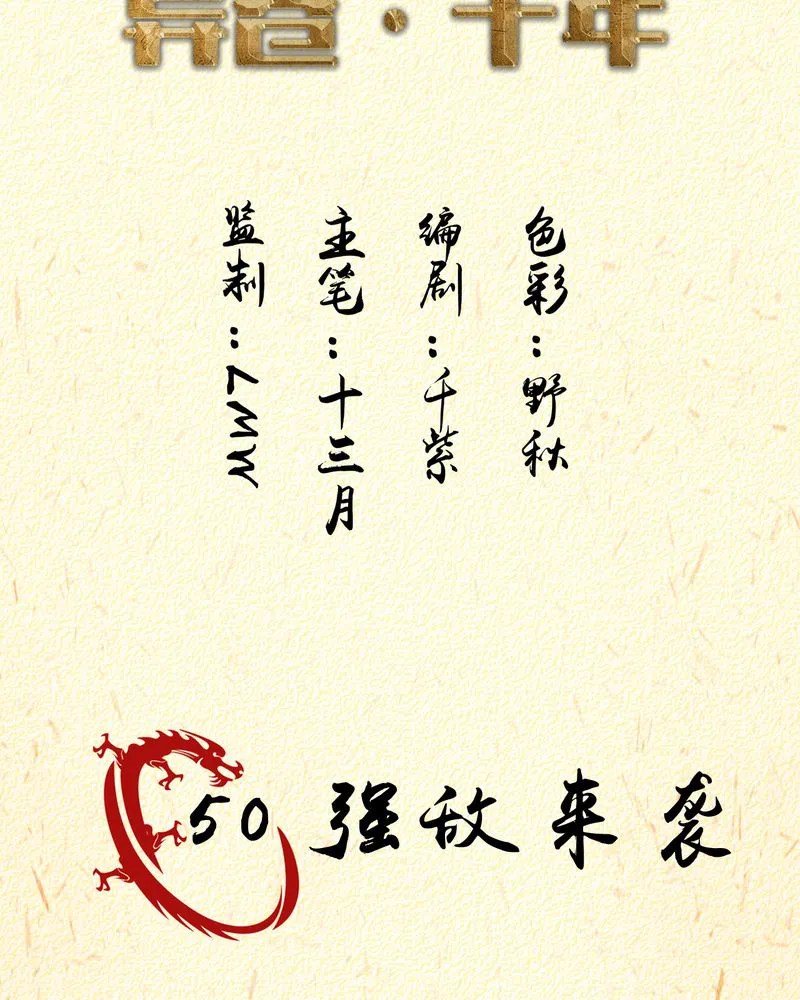 千年
监制：
主笔：十三月
编剧：千紫
色彩：野秋
50 强敌来袭